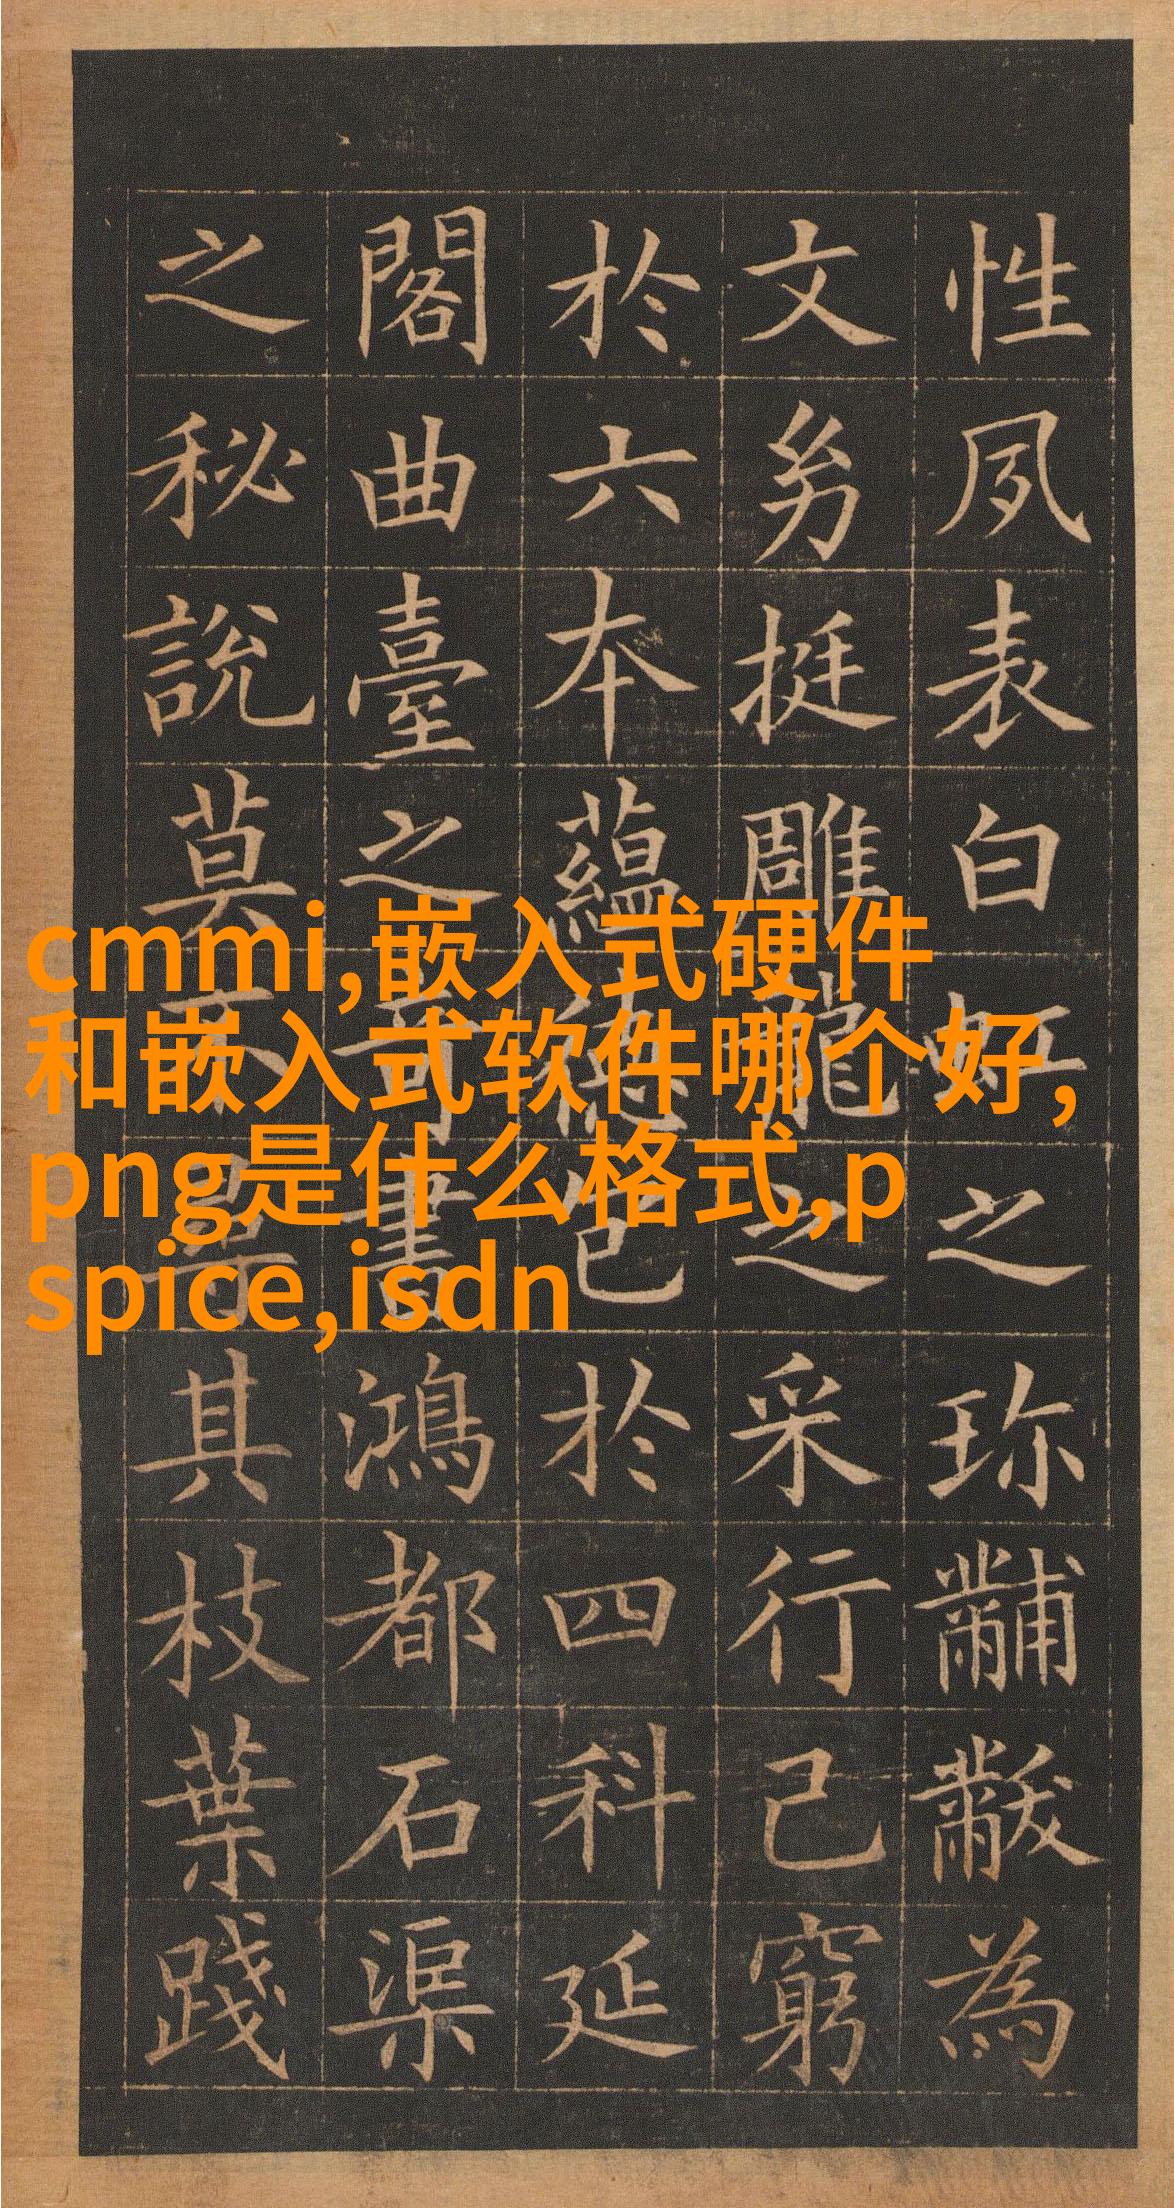 性夙表白虹之珎黼黻為
文㓜挺雕龍之采行己窮
於六本蘊德已於四科延
閣曲臺之奇書鴻都石渠
之秘說莫不尋其枝葉踐
cmmi,嵌入式硬件
和嵌入式软件哪个好,
png是什么格式,p
spice,isdn